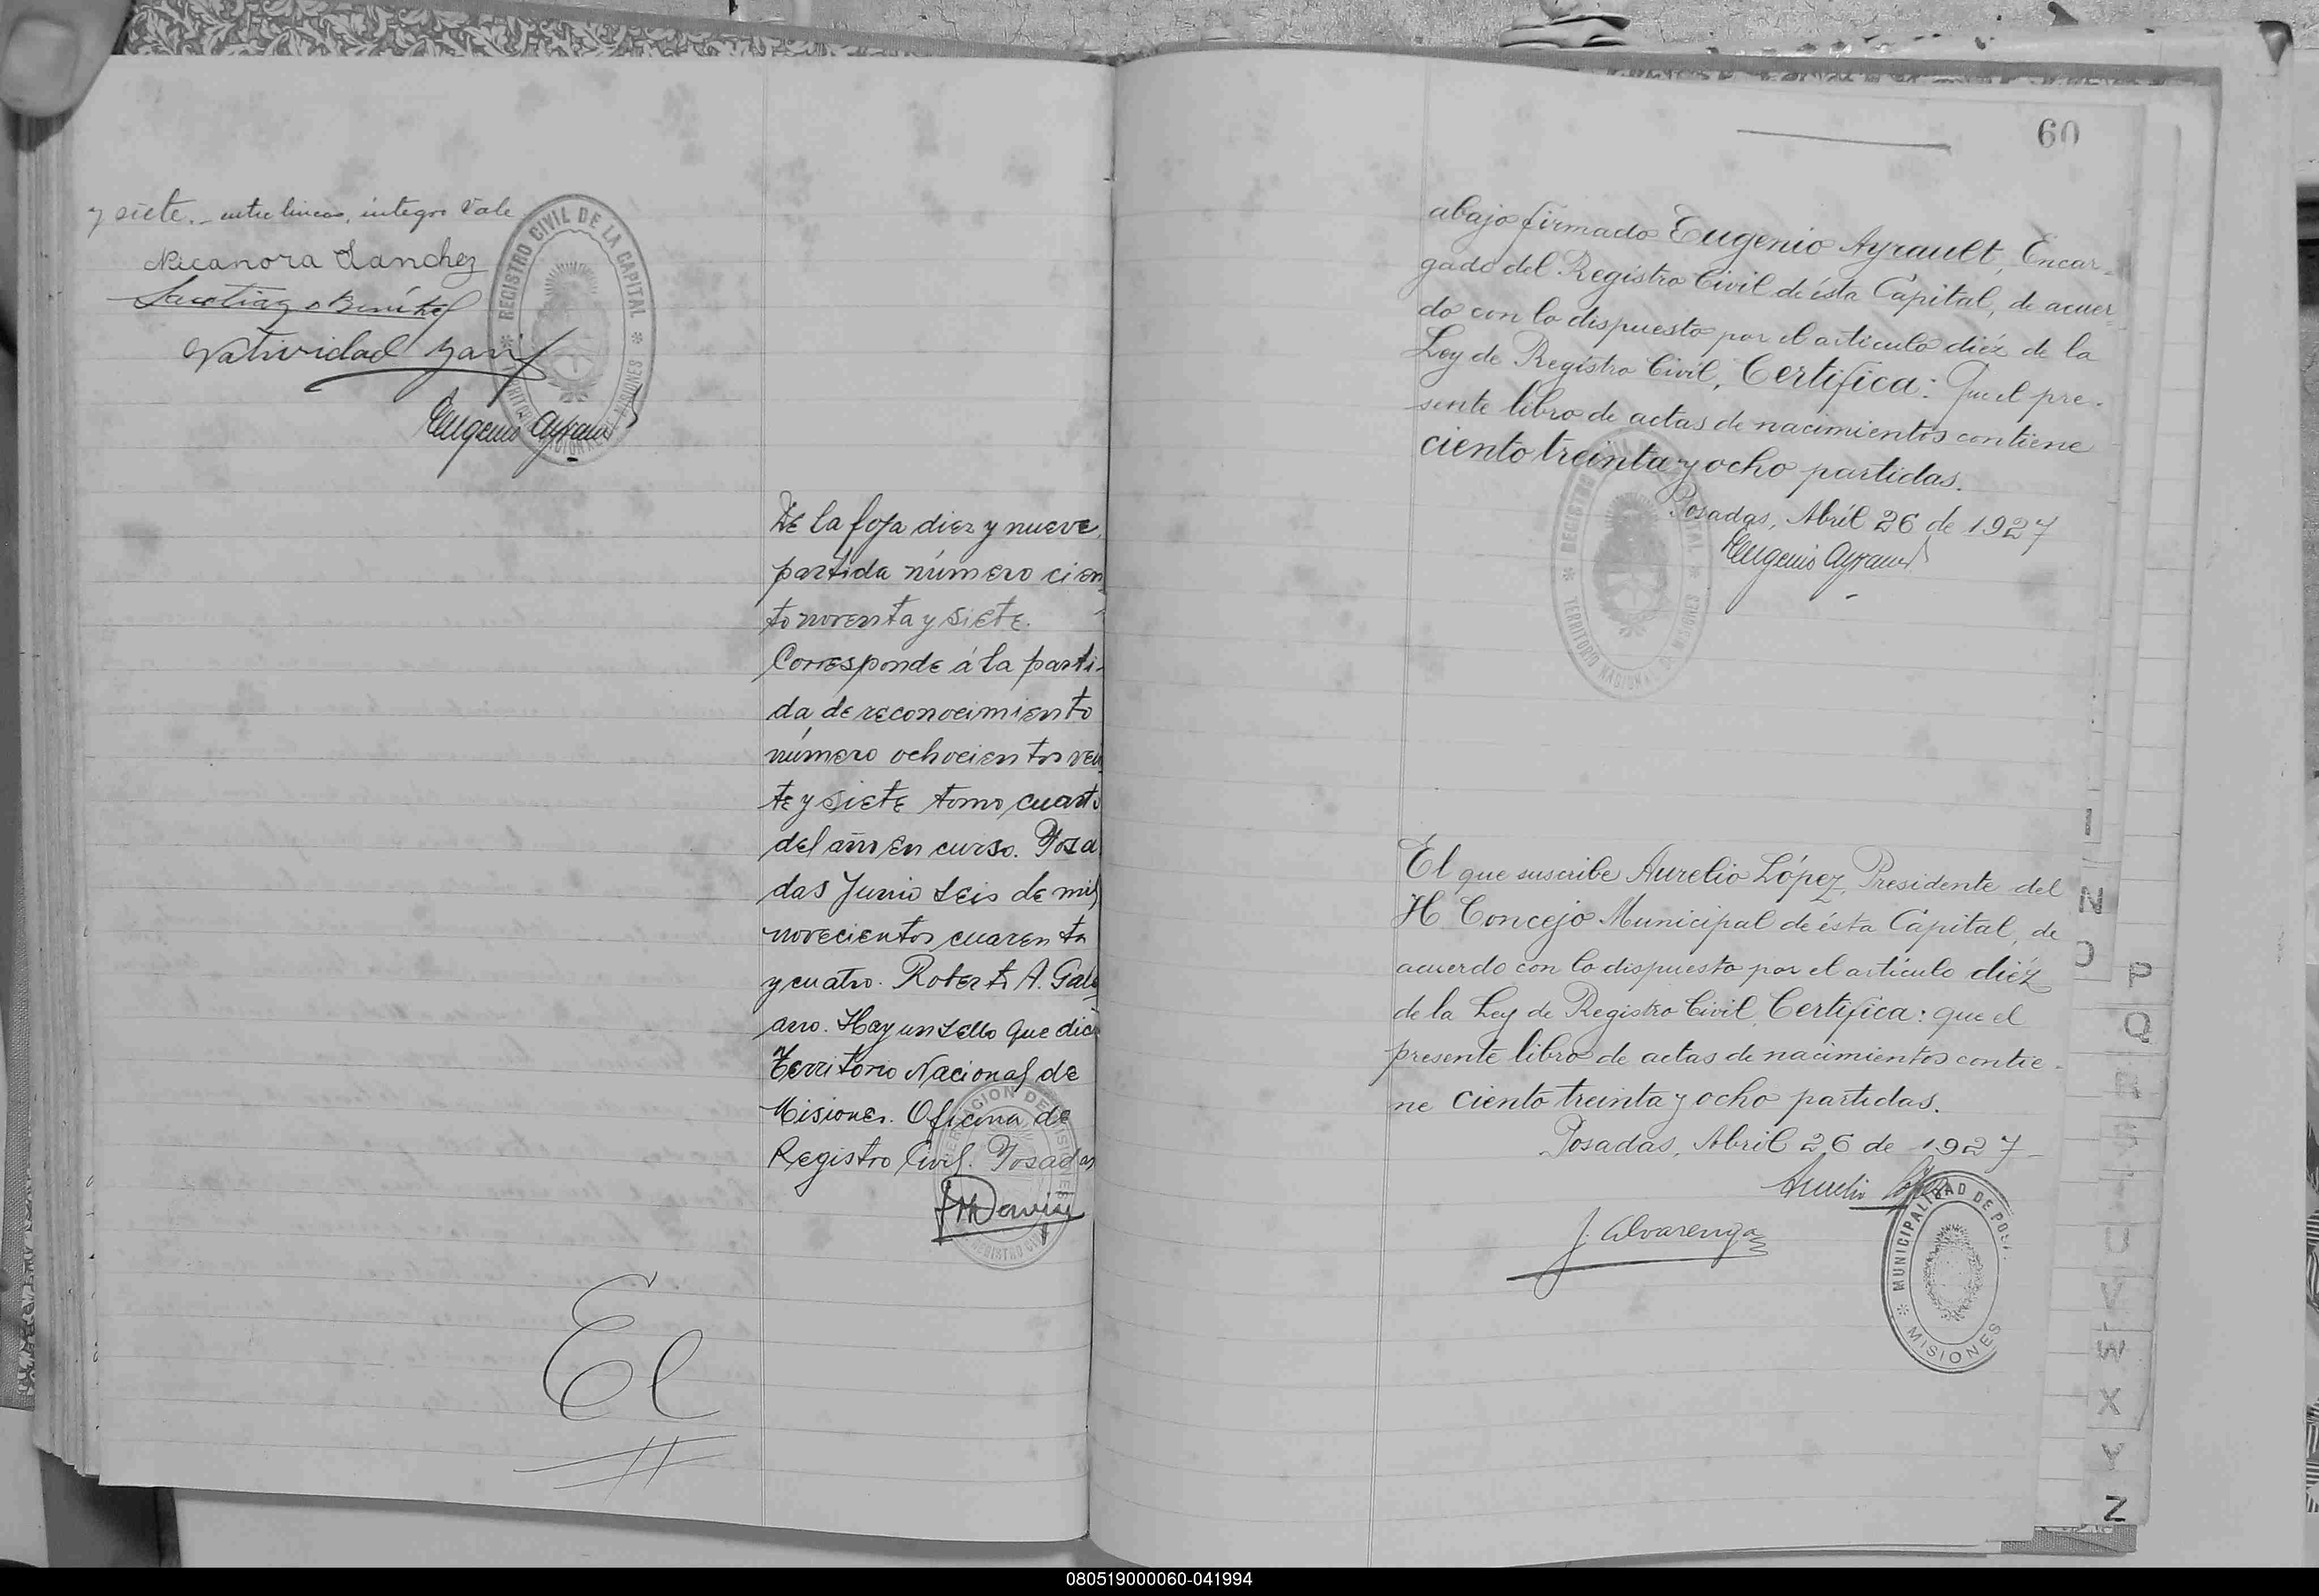 y siete. _ entre lineas, integro Vale
Nicanora Sanchez
Santiago Benítez
Natividad
Eugenio Ayrault
REGISTRO CIVIL DE LA CAPITAL
De la foja diez y nueve
partida número cien
to noventa y siete.
Corresponde á la parti-
da de reconocimiento
número ochocientos vein
te y siete tomo cuarto
del año en curso. Posa
das Junio seis de mil
novecientos cuarenta
y cuatro. Roberto A. Gale
ano. Hay un sello que dice
Territorio Nacional de
Misiones. Oficina de
Registro Civil. Posadas
El
60
abajo firmado Eugenio Ayrault, Encar-
gado del Registro Civil de ésta Capital, de acuer-
do con lo dispuesto por el artículo diéz de la
Ley de Registro Civil, Certifica: Que el pre-
sente libro de actas de nacimientos contiene
ciento treinta y ocho partidas.
Posadas, Abril 26 de 1927
Eugenio Ayrault
REGISTRO CIVIL
TERRITORIO NACIONAL DE MISIONES
El que suscribe Aurelio López, Presidente del
H. Concejo Municipal de ésta Capital, de
acuerdo con lo dispuesto por el artículo diéz
de la Ley de Registro Civil, Certifica: que el
presente libro de actas de nacimientos contie-
ne ciento treinta y ocho partidas.
Posadas, Abril 26 de 1927-
Aurelio López
J. Alvarenga
MUNICIPALIDAD DE POS
MISIONES
N
P
Q
R
S
U
V
W
X
Y
Z
080519000060-041994